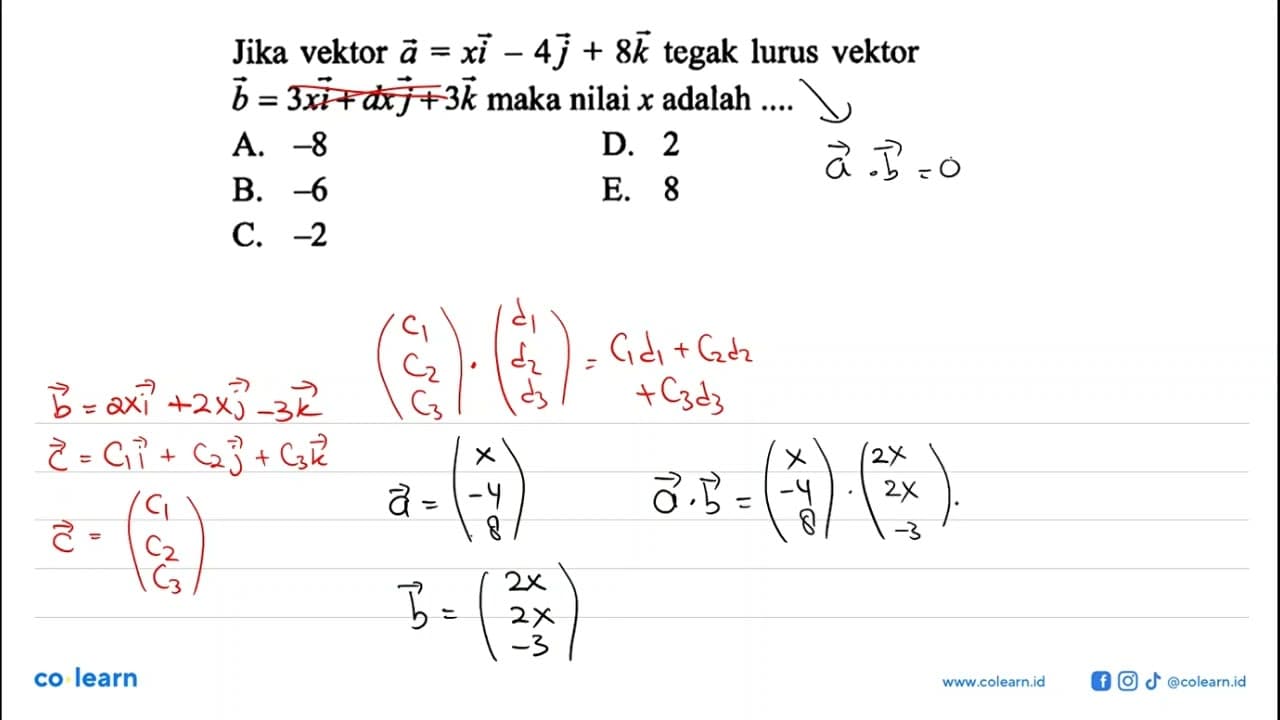 Jika vektor a⃗ = xi⃗ – 4j⃗ + 8k⃗ tegak lurus vektor
b⃗ = 3xi⃗ + dxj⃗ + 3k⃗ maka nilai x adalah ....
A. –8
B. –6
C. –2
D. 2
E. 8
a⃗ . b⃗ = 0
(c₁ c₂ c₃) . (d₁ d₂ d₃) = c₁d₁ + c₂d₂
+ c₃d₃
b⃗ = 2xi⃗ + 2xj⃗ – 3k⃗
c⃗ = c₁i⃗ + c₂j⃗ + c₃k⃗
c⃗ = (c₁ c₂ c₃)
a⃗ = (x –4 8)
b⃗ = (2x 2x –3)
a⃗ . b⃗ = (x –4 8) . (2x 2x –3) .
co learn
www.colearn.id
@colearn.id